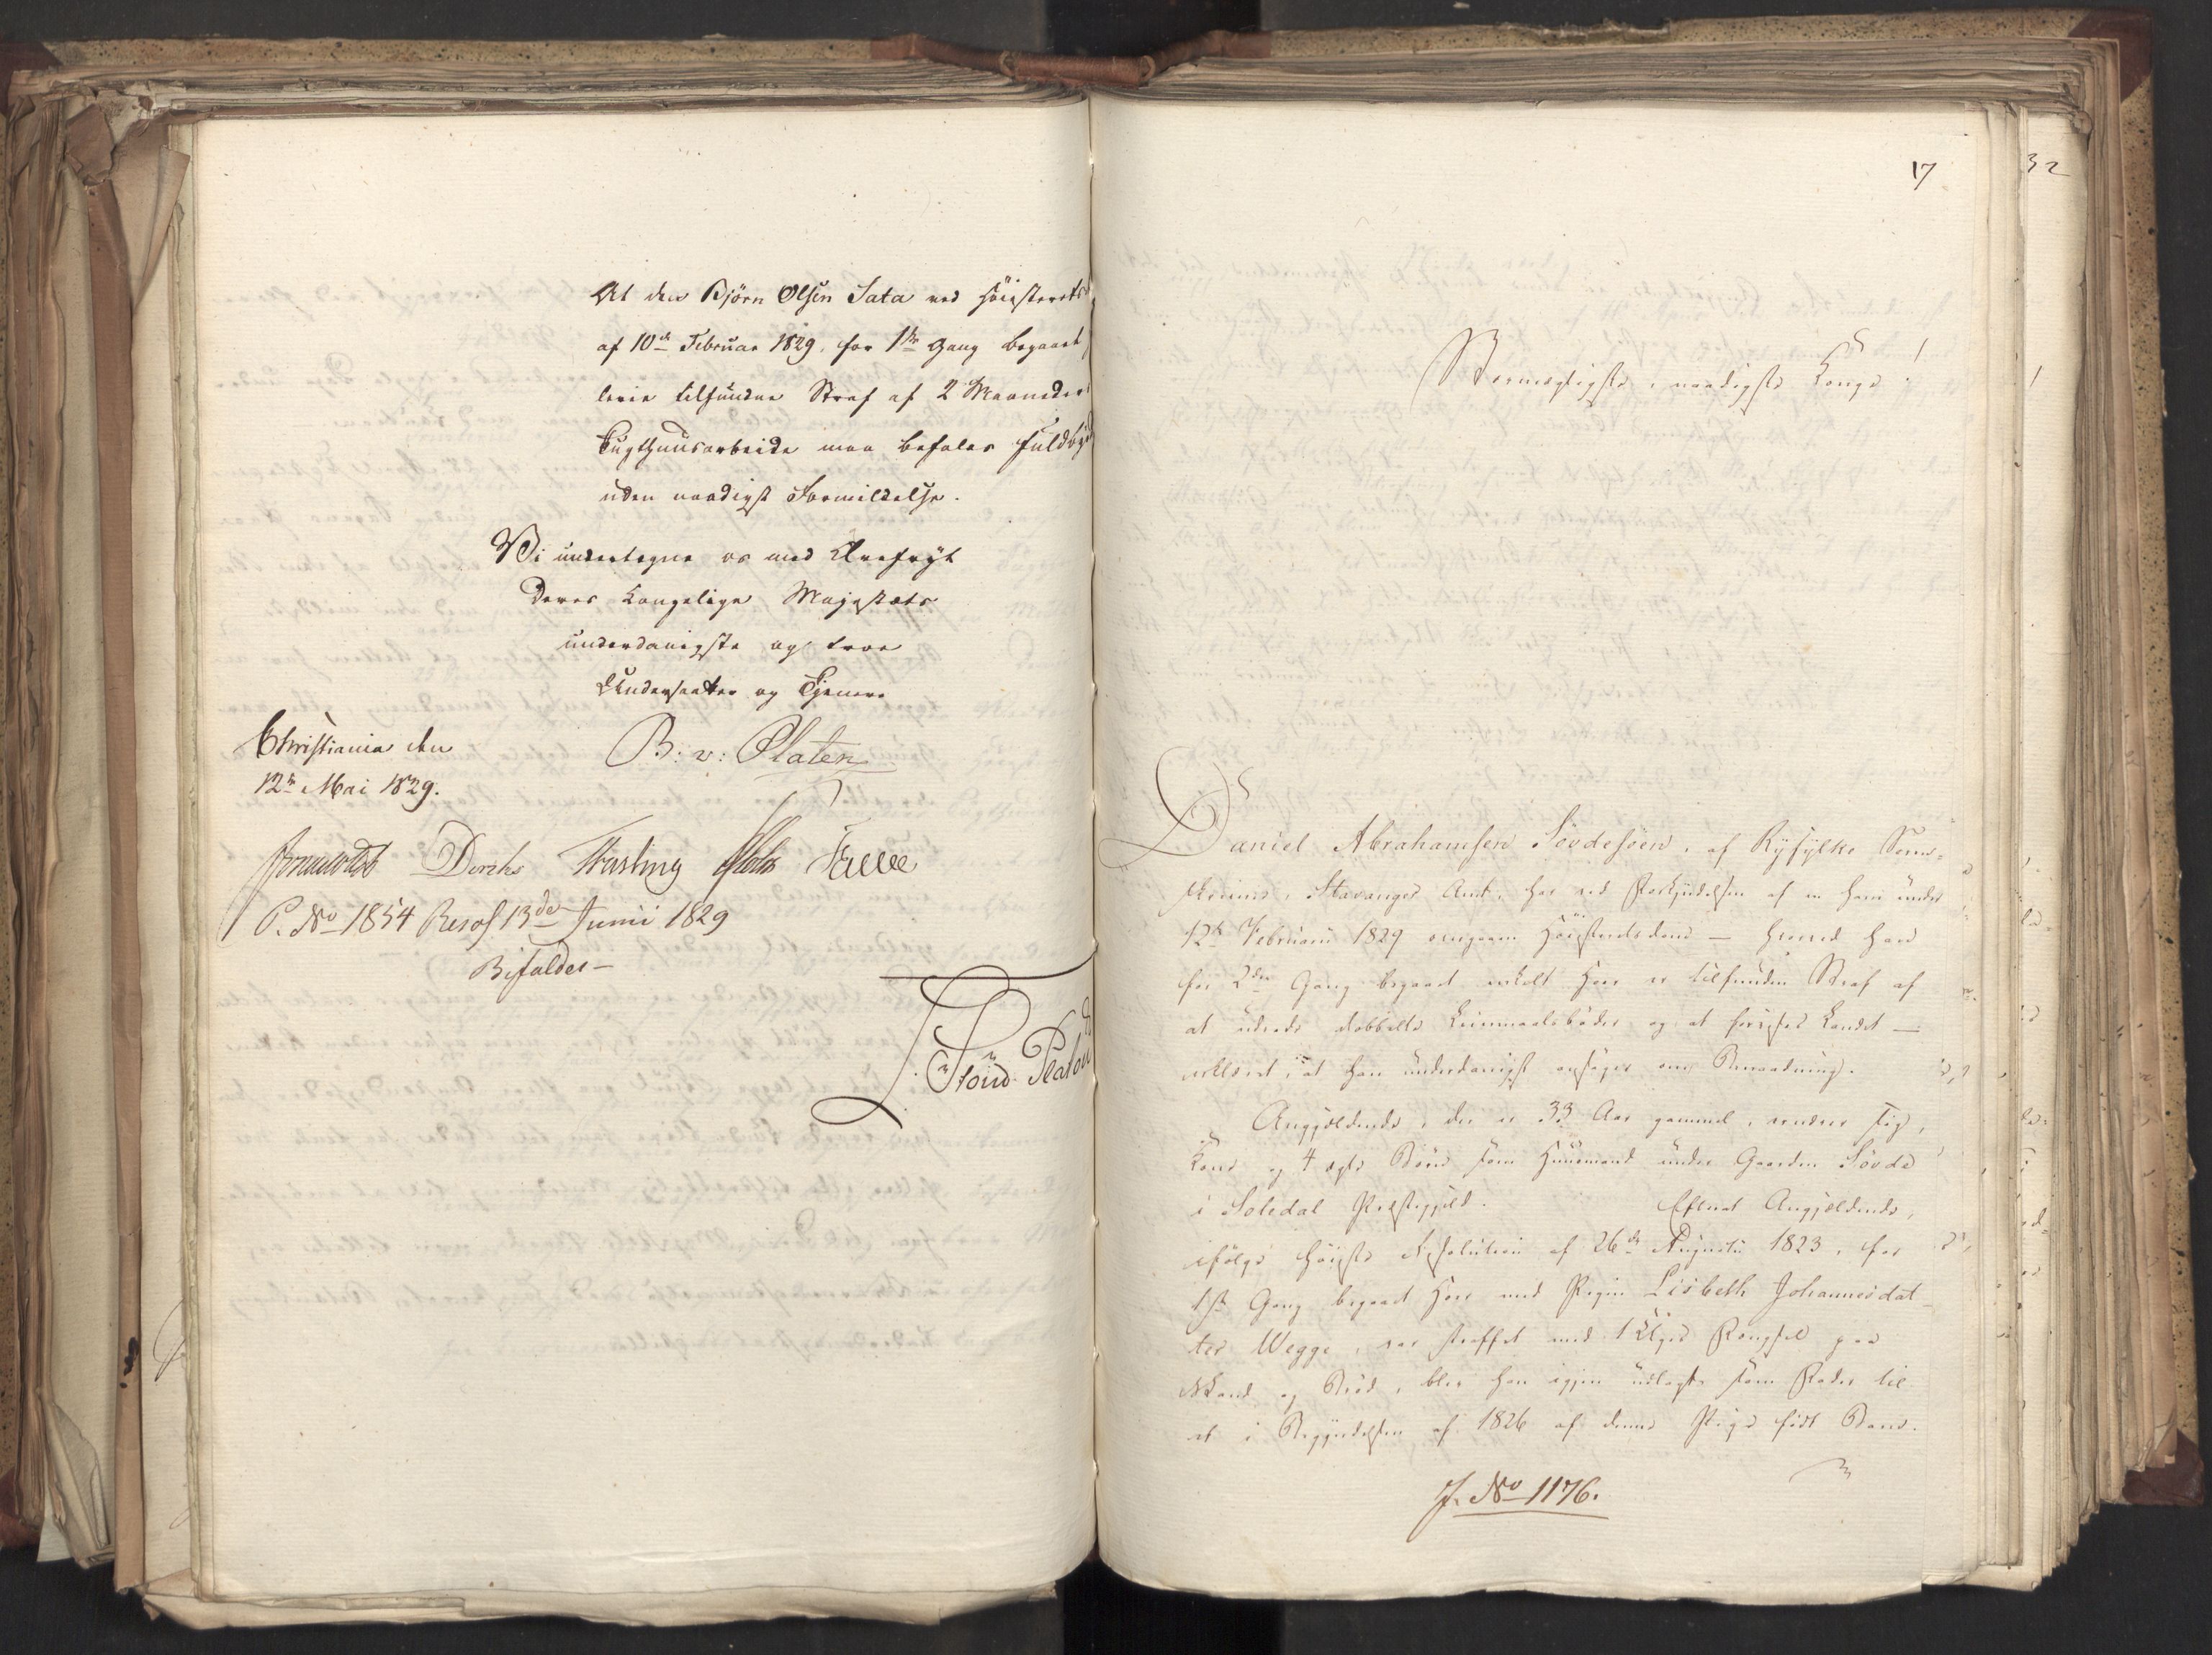 At den Björn Olsen Sata ved Höiesterets
af 10de Februar 1829, for 1ste Gang begaaet
leie tilfundne Straf af 2 Maaneders
Tugthuusarbeide maa befales fuldby
uden naadigst Formildelse.
Vi undertegne os med Ærefrygt
Deres Kongelige Majestæts
underdanigste og troe
Undersaatter og Tjenere
B: v: Platen
Christiania den
12te Mai 1829.
Diriks Fasting Falsen
P. No 1854 Resol 13de Junii 1829
Bifaldes—
17
32
Stormægtigste, naadigste Konge!
Daniel Abrahamsen Sövdesöen, af Ryfylke Soren-
skriverie, Stavanger Amt, har ved Forkyndelsen af en ham under
12te Februarii 1829 overgaaen Höiesteretsdom — hvorved han
for 2den Gang begaaet enkelt Hoer er tilfunden Straf af
at udrede dobbelte Leiermaalsböder og at forvises Landet —
erklæret, at han underdanigst ansöger om Benaadning.
Angjeldende, der er 33 Aar gammel, ernærer sig,
Kone og 4 ægte Börn som Huusmand under Gaarden Sövde
i Soledal Præstegjeld. Efterat Angjeldende,
ifölge Höieste Resolution af 26de Augustii 1823, for
1ste Gang begaaet Hoer med Pigen Lisbeth Johannesdat-
ter Wegge, var straffet med 1 Uges Fængsel paa
Vand og Bröd, blev han igjen udlagt som Fader til
et i Begyndelsen af 1826 af denne Pige födt Barn.
J. No 1176.